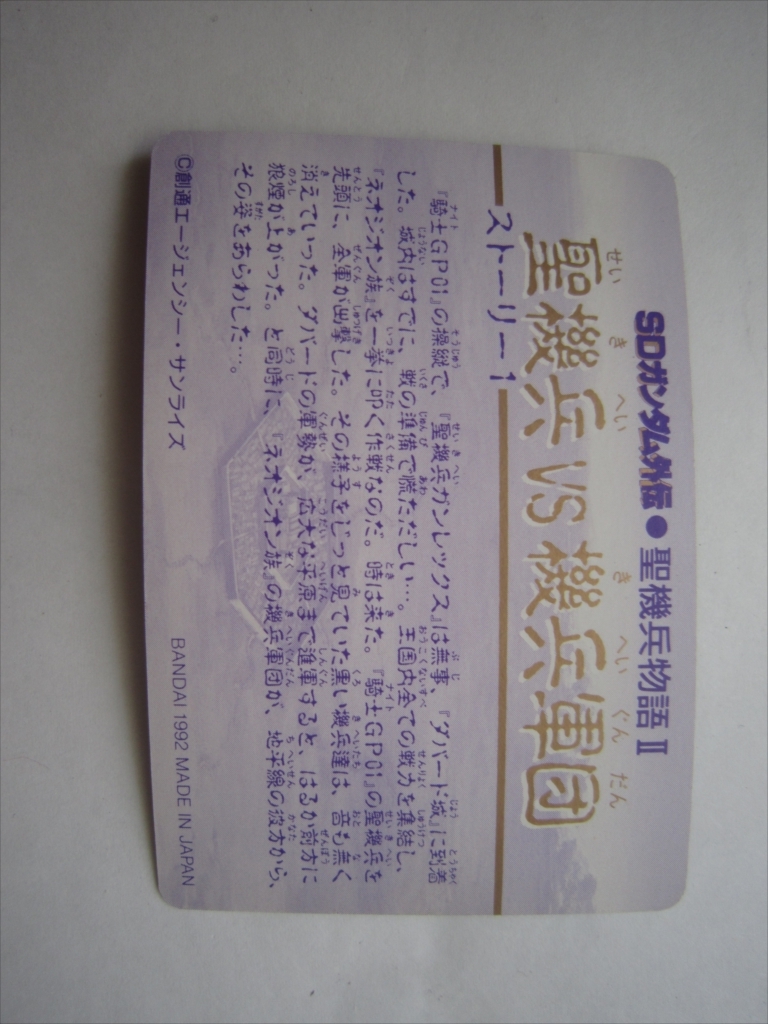 SDガンダム外伝●聖機兵物語Ⅱ
聖機兵VS機兵軍団
ストーリー1
『騎士GP01』の操縦で、『聖機兵ガンレックス』は無事『ダバード城』に到着
した。城内はすでに、戦の準備で慌ただしい…。王国内全ての戦力を集結し、
『ネオジオン族』を一挙に叩く作戦なのだ。時は来た。『騎士GP01』の聖機兵を
先頭に、全軍が出撃した。その様子をじっと見ていた黒い機兵達は、音も無く
消えていった。ダバードの軍勢が、広大な平原まで進軍すると、はるか前方に
狼煙が上がった。と同時に、『ネオジオン族』の機兵軍団が、地平線の彼方から、
その姿をあらわした…。
©創通エージェンシー・サンライズ
BANDAI 1992 MADE IN JAPAN